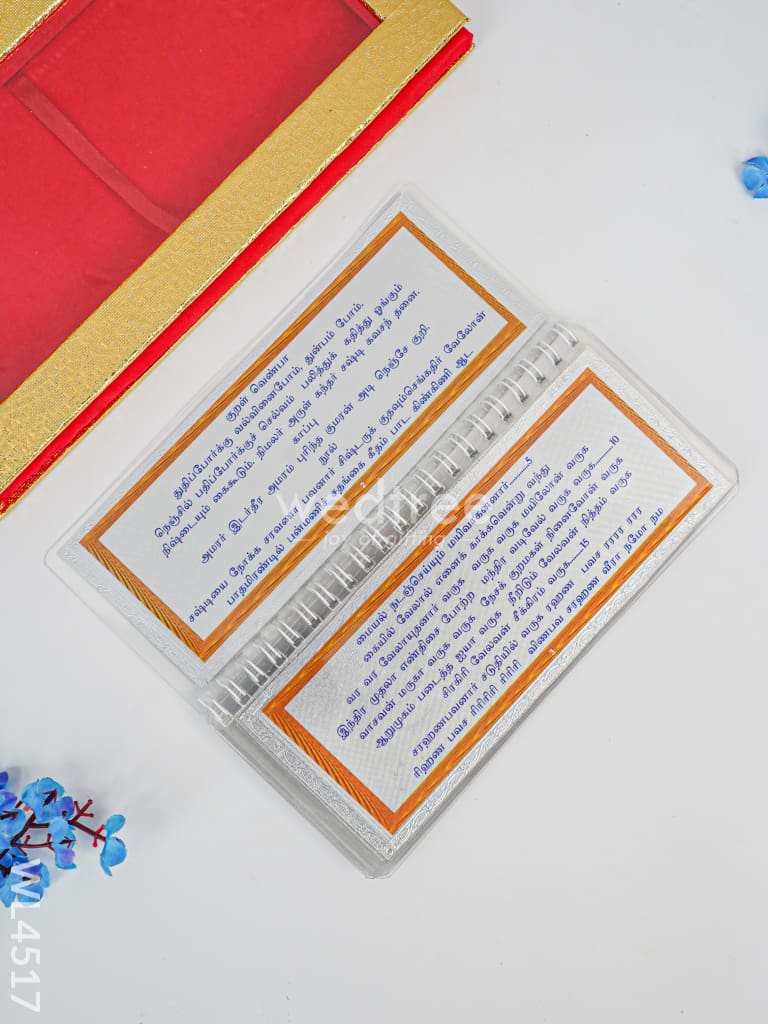 குறள் வெண்பா
துதிப்போர்க்கு வல்வினைபோம், துன்பம் போம்.
நெஞ்சில் பதிப்போர்க்குச் செல்வம் பலித்துக் கதித்து ஓங்கும்
நிஷ்டையும் கைகூடும். நிமலர் அருள் கந்தர் சஷ்டி கவசந் தனை.
காப்பு
அமரர் இடர்தீர அமரம் புரிந்த குமரன் அடி நெஞ்சே குறி.
நூல்
சஷ்டியை நோக்க சரவணபவனார் சிஷ்டருக் குதவும்செங்கதிர் வேலோன்
பாதமிரண்டில் பன்மணிச்சதங்கை கீதம் பாட கிண்கிணி ஆட
மையல் நடஞ்செய்யும் மயில்வாகனனார்......5
கையில் வேலால் எனைக் காக்கவென்று வந்து
வர வர வேலாயுதனார் வருக வருக வருக மயிலோன் வருக
இந்திர முதலா எண்திசை போற்ற மந்திர வடிவேல் வருக வருக......10
வாசவன் மருகா வருக வருக நேசக் குறமகள் நினைவோன் வருக
ஆறுமுகம் படைத்த ஐயா வருக நீறிடும் வேலவன் நித்தம் வருக
சிரகிரி வேலவன் சீக்கிரம் வருக......15
சரஹணபவனார் சடுதியில் வருக ரஹண பவச ரரரர ரரர
ரிஹண பவச ரிரிரிரி ரிரிரி விணபவ சரஹண வீரா நமோ நம
3
wedtree
joy of gifting
WL4517